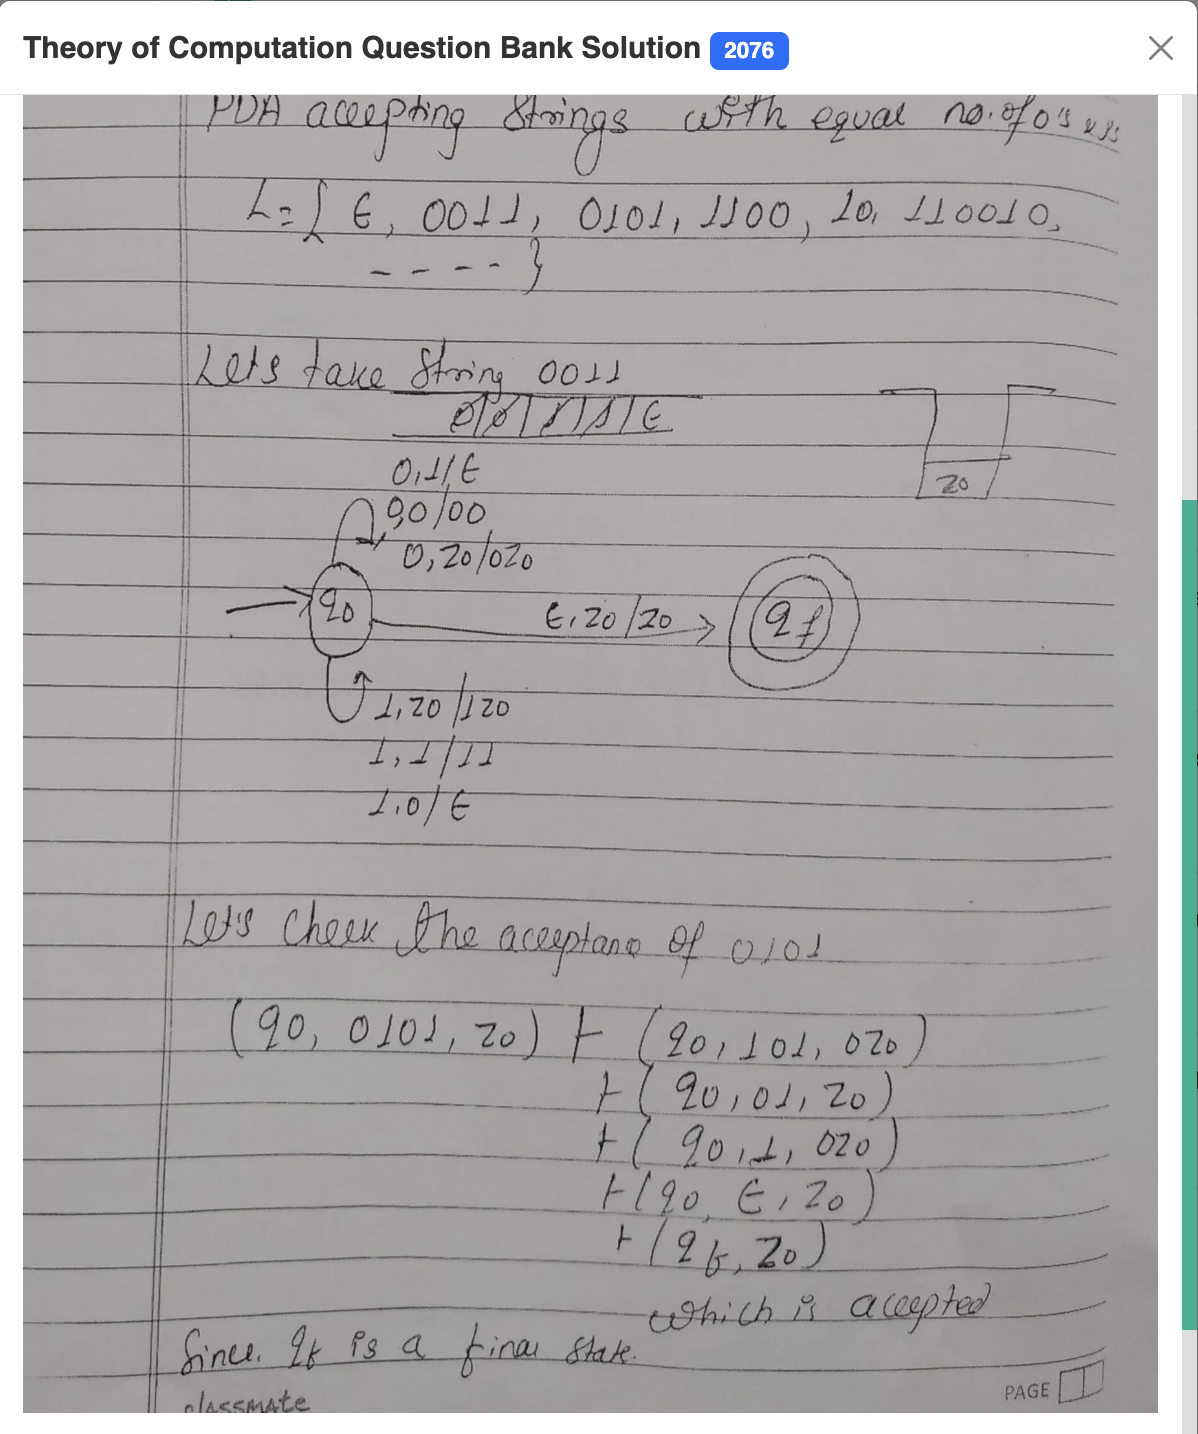 Theory of Computation Question Bank Solution 2076
PDA accepting Strings with equal no. of 0's
L = { ϵ, 0011, 0101, 1100, 10, 110010,
- - - - }
Lets take String 0011
0 0 1 1 ϵ
z0
0,1/ϵ
0,0/00
0,z0/0z0
q0
ϵ,z0/z0
qf
1,z0/1z0
1,1/11
1,0/ϵ
Let's Check the acceptane of 0101
(q0, 0101, z0) ⊢ (q0, 101, 0z0)
⊢ (q0, 01, z0)
⊢ (q0, 1, 0z0)
⊢ (q0, ϵ, z0)
⊢ (qf, z0)
which is accepted
Since. qf is a final state.
classmate
PAGE